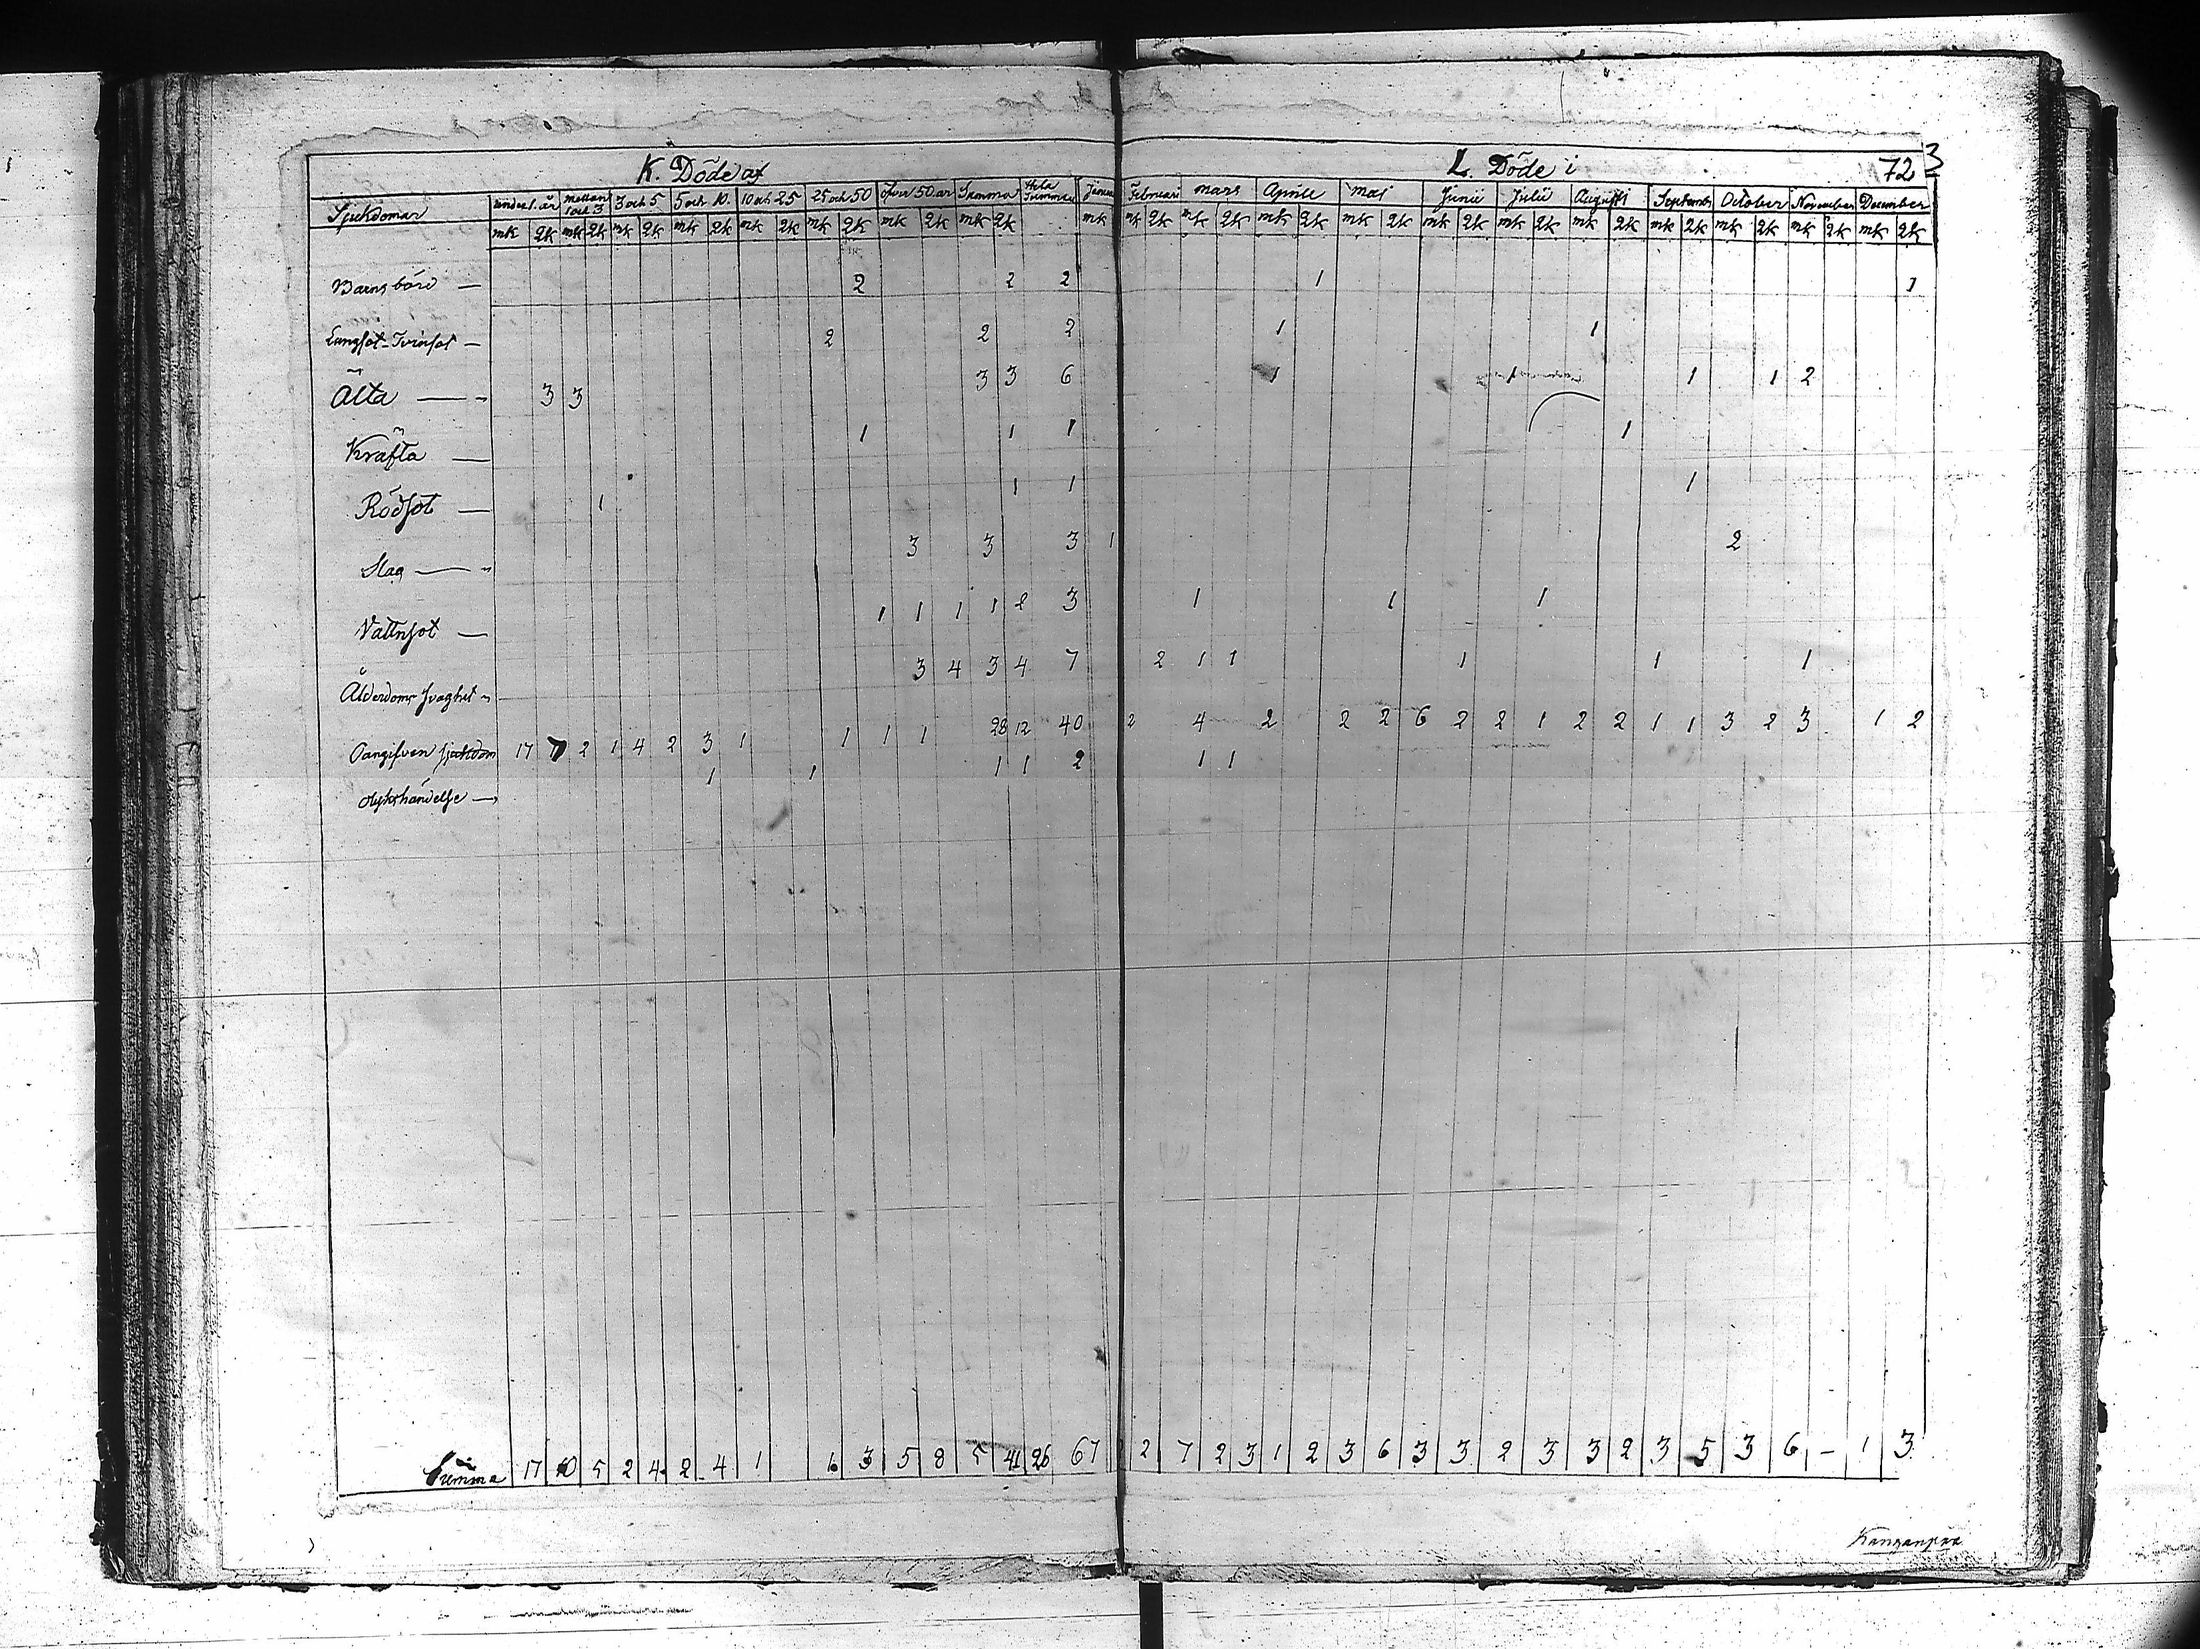 K. Döde af
L. Döde i 72 3
Sjukdomar under 1. år mellan 1 och 3 3 och 5 5 och 10. 10 och 25 25 och 50 öfver 50 år Summa Hela Summan Januari Februari Mars Aprile Maj Junii Julii Augusti September October November December
mk qk mk qk mk qk mk qk mk qk mk qk mk qk mk qk mk mk qk mk qk mk qk mk qk mk qk mk qk mk qk mk qk mk qk mk qk mk qk
Barnsbörd — 2 2 2 1 1
Lungsot-Tvinsot — 2 2 2 1 1
Älta — 3 3 3 3 6 1 1 1 2
Kräfta — 1 1 1 1
Rödsot — 1 1 1 1
Slag — 3 3 3 1 2
Vattusot — 1 1 1 1 2 3 1 1 1
Ålderdoms svaghet 3 4 3 4 7 2 1 1 1 1 1
Oangifven sjukdom 17 7 2 1 4 2 3 1 1 1 1 28 12 40 2 4 2 2 2 6 2 2 1 2 2 1 1 3 2 3 1 2
Olykshändelse — 1 1 1 1 2 1 1
Summa 17 10 5 2 4 2 4 1 6 3 5 8 5 41 26 67 2 7 2 3 1 2 3 6 3 3 2 3 3 2 3 5 3 6 – 1 3
Kanganpää